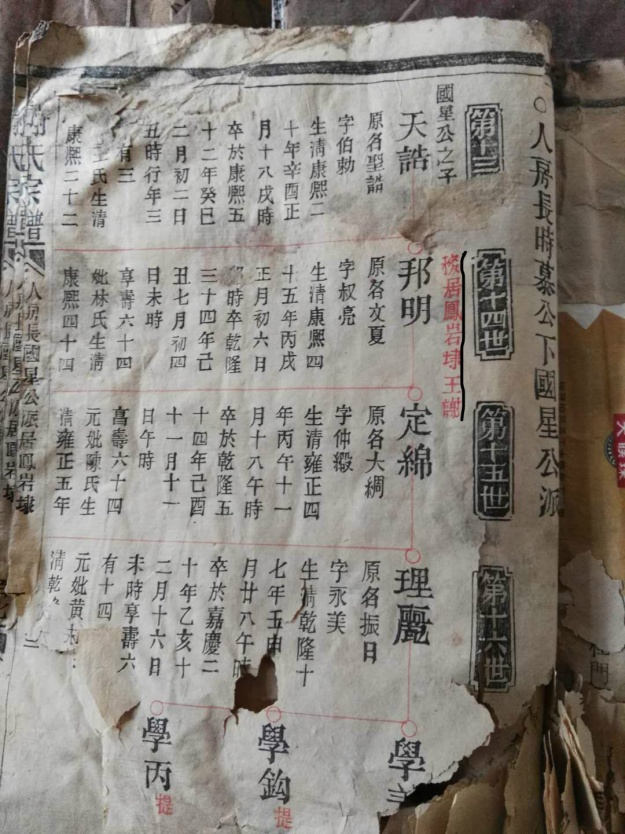 人房長時慕公下國星公派
第十三
國星公之子
天誥
原名聖誥
字伯勅
生清康熙二
十年辛酉正
月十八戌時
卒於康熙五
十二年癸巳
二月初二日
丑時行年三
有三
氏生清
康熙二十二
第十四世
移居鳳岩埭王謝
邦明
原名文夏
字叔亮
生清康熙四
十五年丙戌
正月初六日
時卒乾隆
三十四年己
丑七月初四
日未時
享壽六十四
妣林氏生清
康熙四十四
第十五世
定綿
原名大綢
字仲緞
生清雍正四
年丙午十一
月十八午時
卒於乾隆五
十四年己酉
十一月十一
日午時
享壽六十四
元妣陳氏生
清雍正五年
第十六世
理壓
原名振日
字永美
生清乾隆十
七年壬申
月廿八午時
卒於嘉慶二
十年乙亥十
二月十六日
未時享壽六
有十四
元妣黃
清乾
學
學鈎
提
學丙
提
氏宗譜
人房長國星公派居鳳岩埭